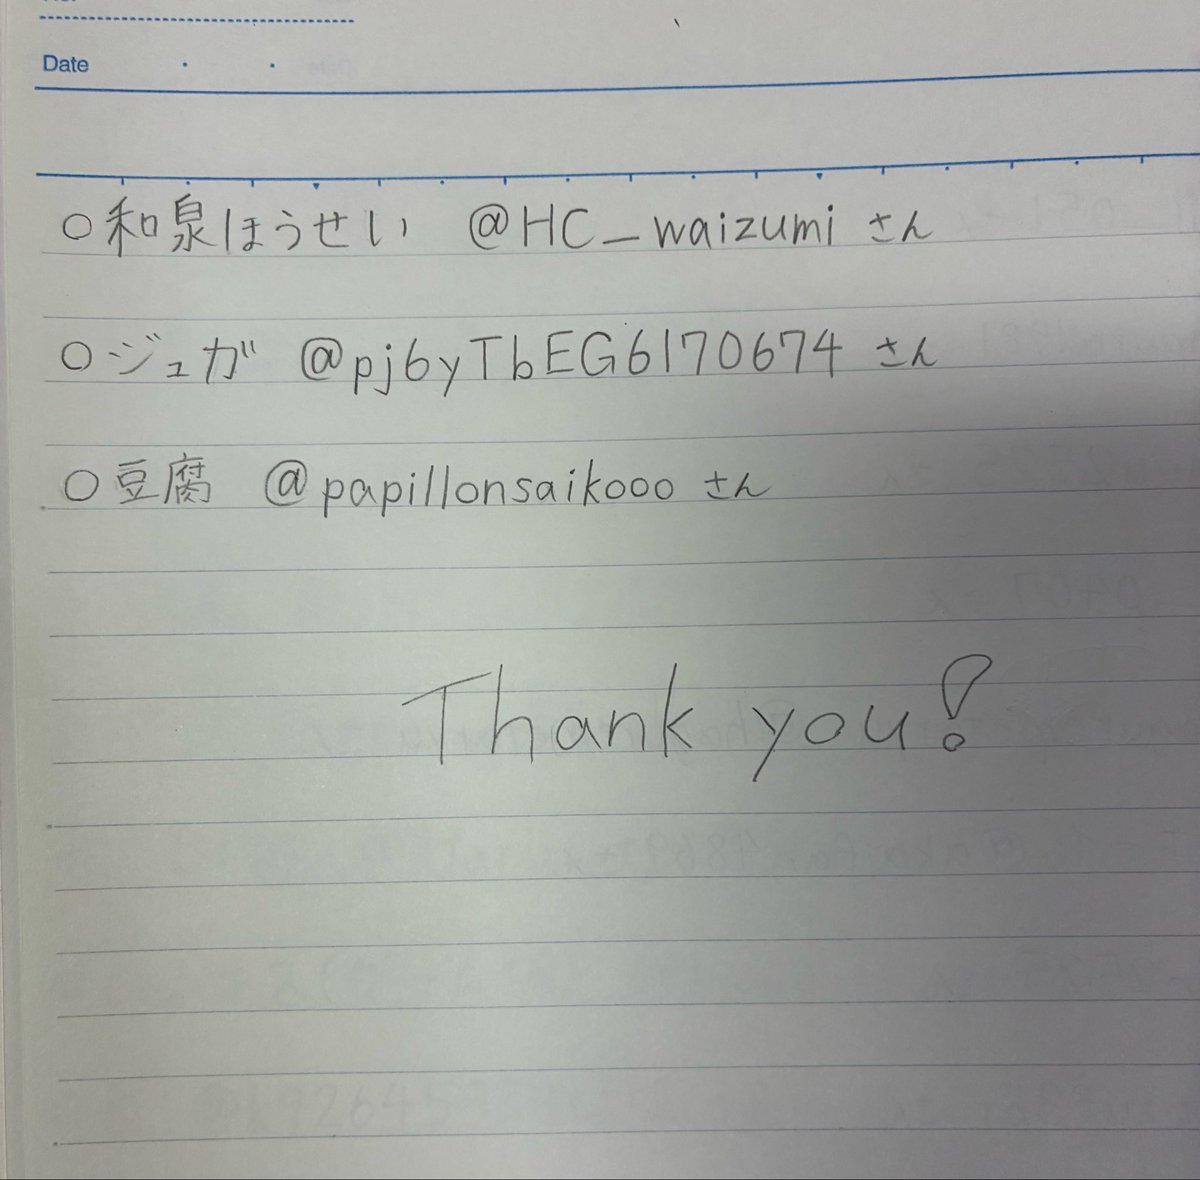 Date
○和泉ほうせい @HC_waizumi さん
○ジュガ @pj6yTbEG6170674 さん
○豆腐 @papillonsaikooo さん
Thank you!